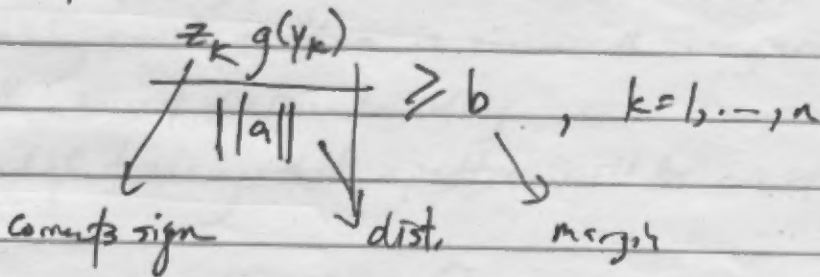 z_k g(y_k)
‖a‖ ≥ b , k=1,...,n
corrects sign dist. margin